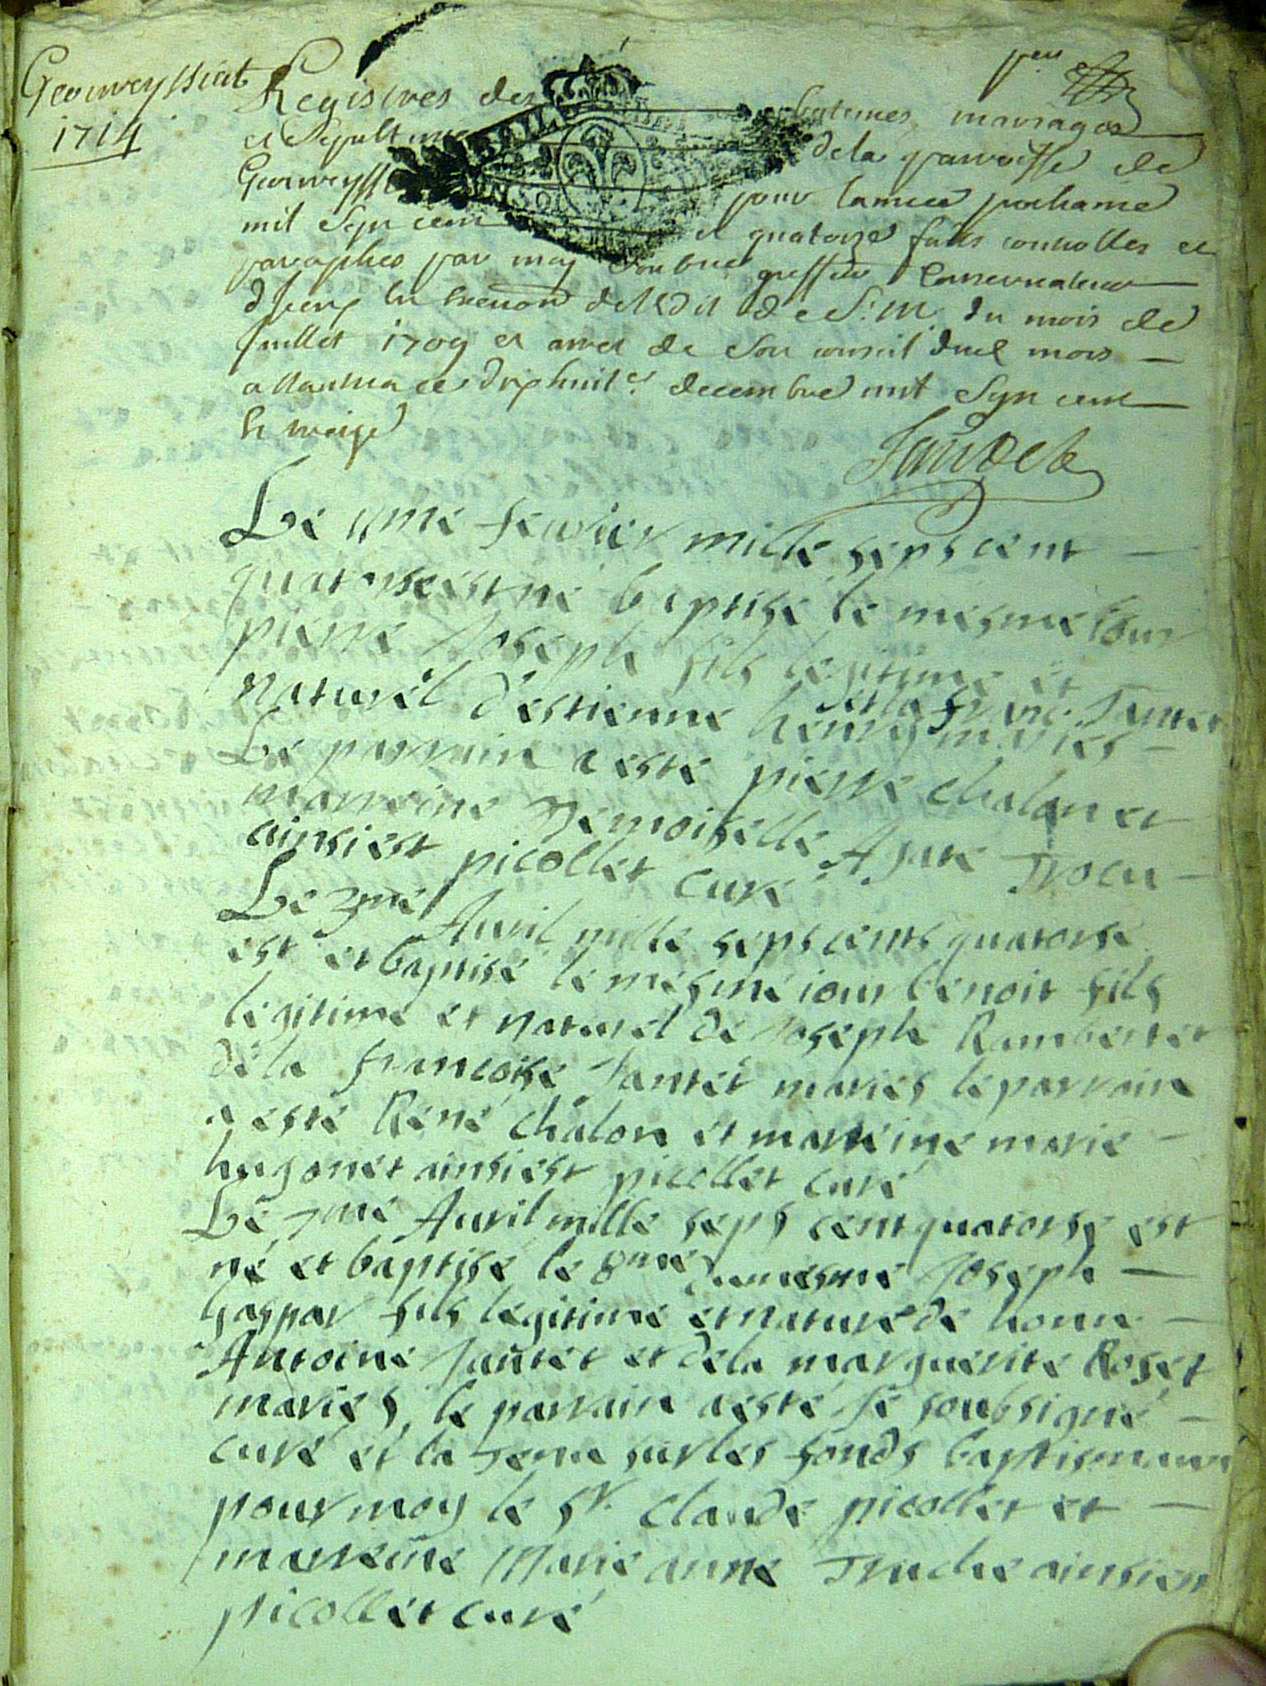 Geovreyssiat
1714
Registres des batemes mariages
et Sepultures de la parroisse de
Geovreyssiat pour lannee prochaine
mil Sept cent et quatorze fais cottes et
paraphes par moy greffier Conservateur
de ledit de S. M. du mois de
Juillet 1709 et arret de Son conseil dud mois
a Nantua ce dix huit decembre mil Sept cent
treize
Jantet
Le fevrier mille septs cent
quatorse est né baptisé le mesme iour
pierre Joseph fils legitime et
naturel d'estienne et de la Jantet
mariés
Le parrain a esté pierre chalon et
marreine Demoiselle
ainsi est picollet curé
Le 3me Avril mille septs cents quatorse
est et baptisé le mesme iour benoit fils
legitime et naturel de Joseph Rambert et
de la francoise Jantet mariés le parrain
a esté René chalon et marreine marie
hugonet ainsi est picollet curé
Le 7me Avril mille septs cent quatorse est
né et baptisé le 8me du mesme Joseph
Gaspar fils legitime et naturel de honne
Antoine Jantet et de la marguerite Roset
mariés, le parrain a esté Je soubsigné
curé et la tenu sur les fonds baptismaux
pour moy le Sr. Claude picollet et
marreine Marie anne Truche ainsi est
picollet curé